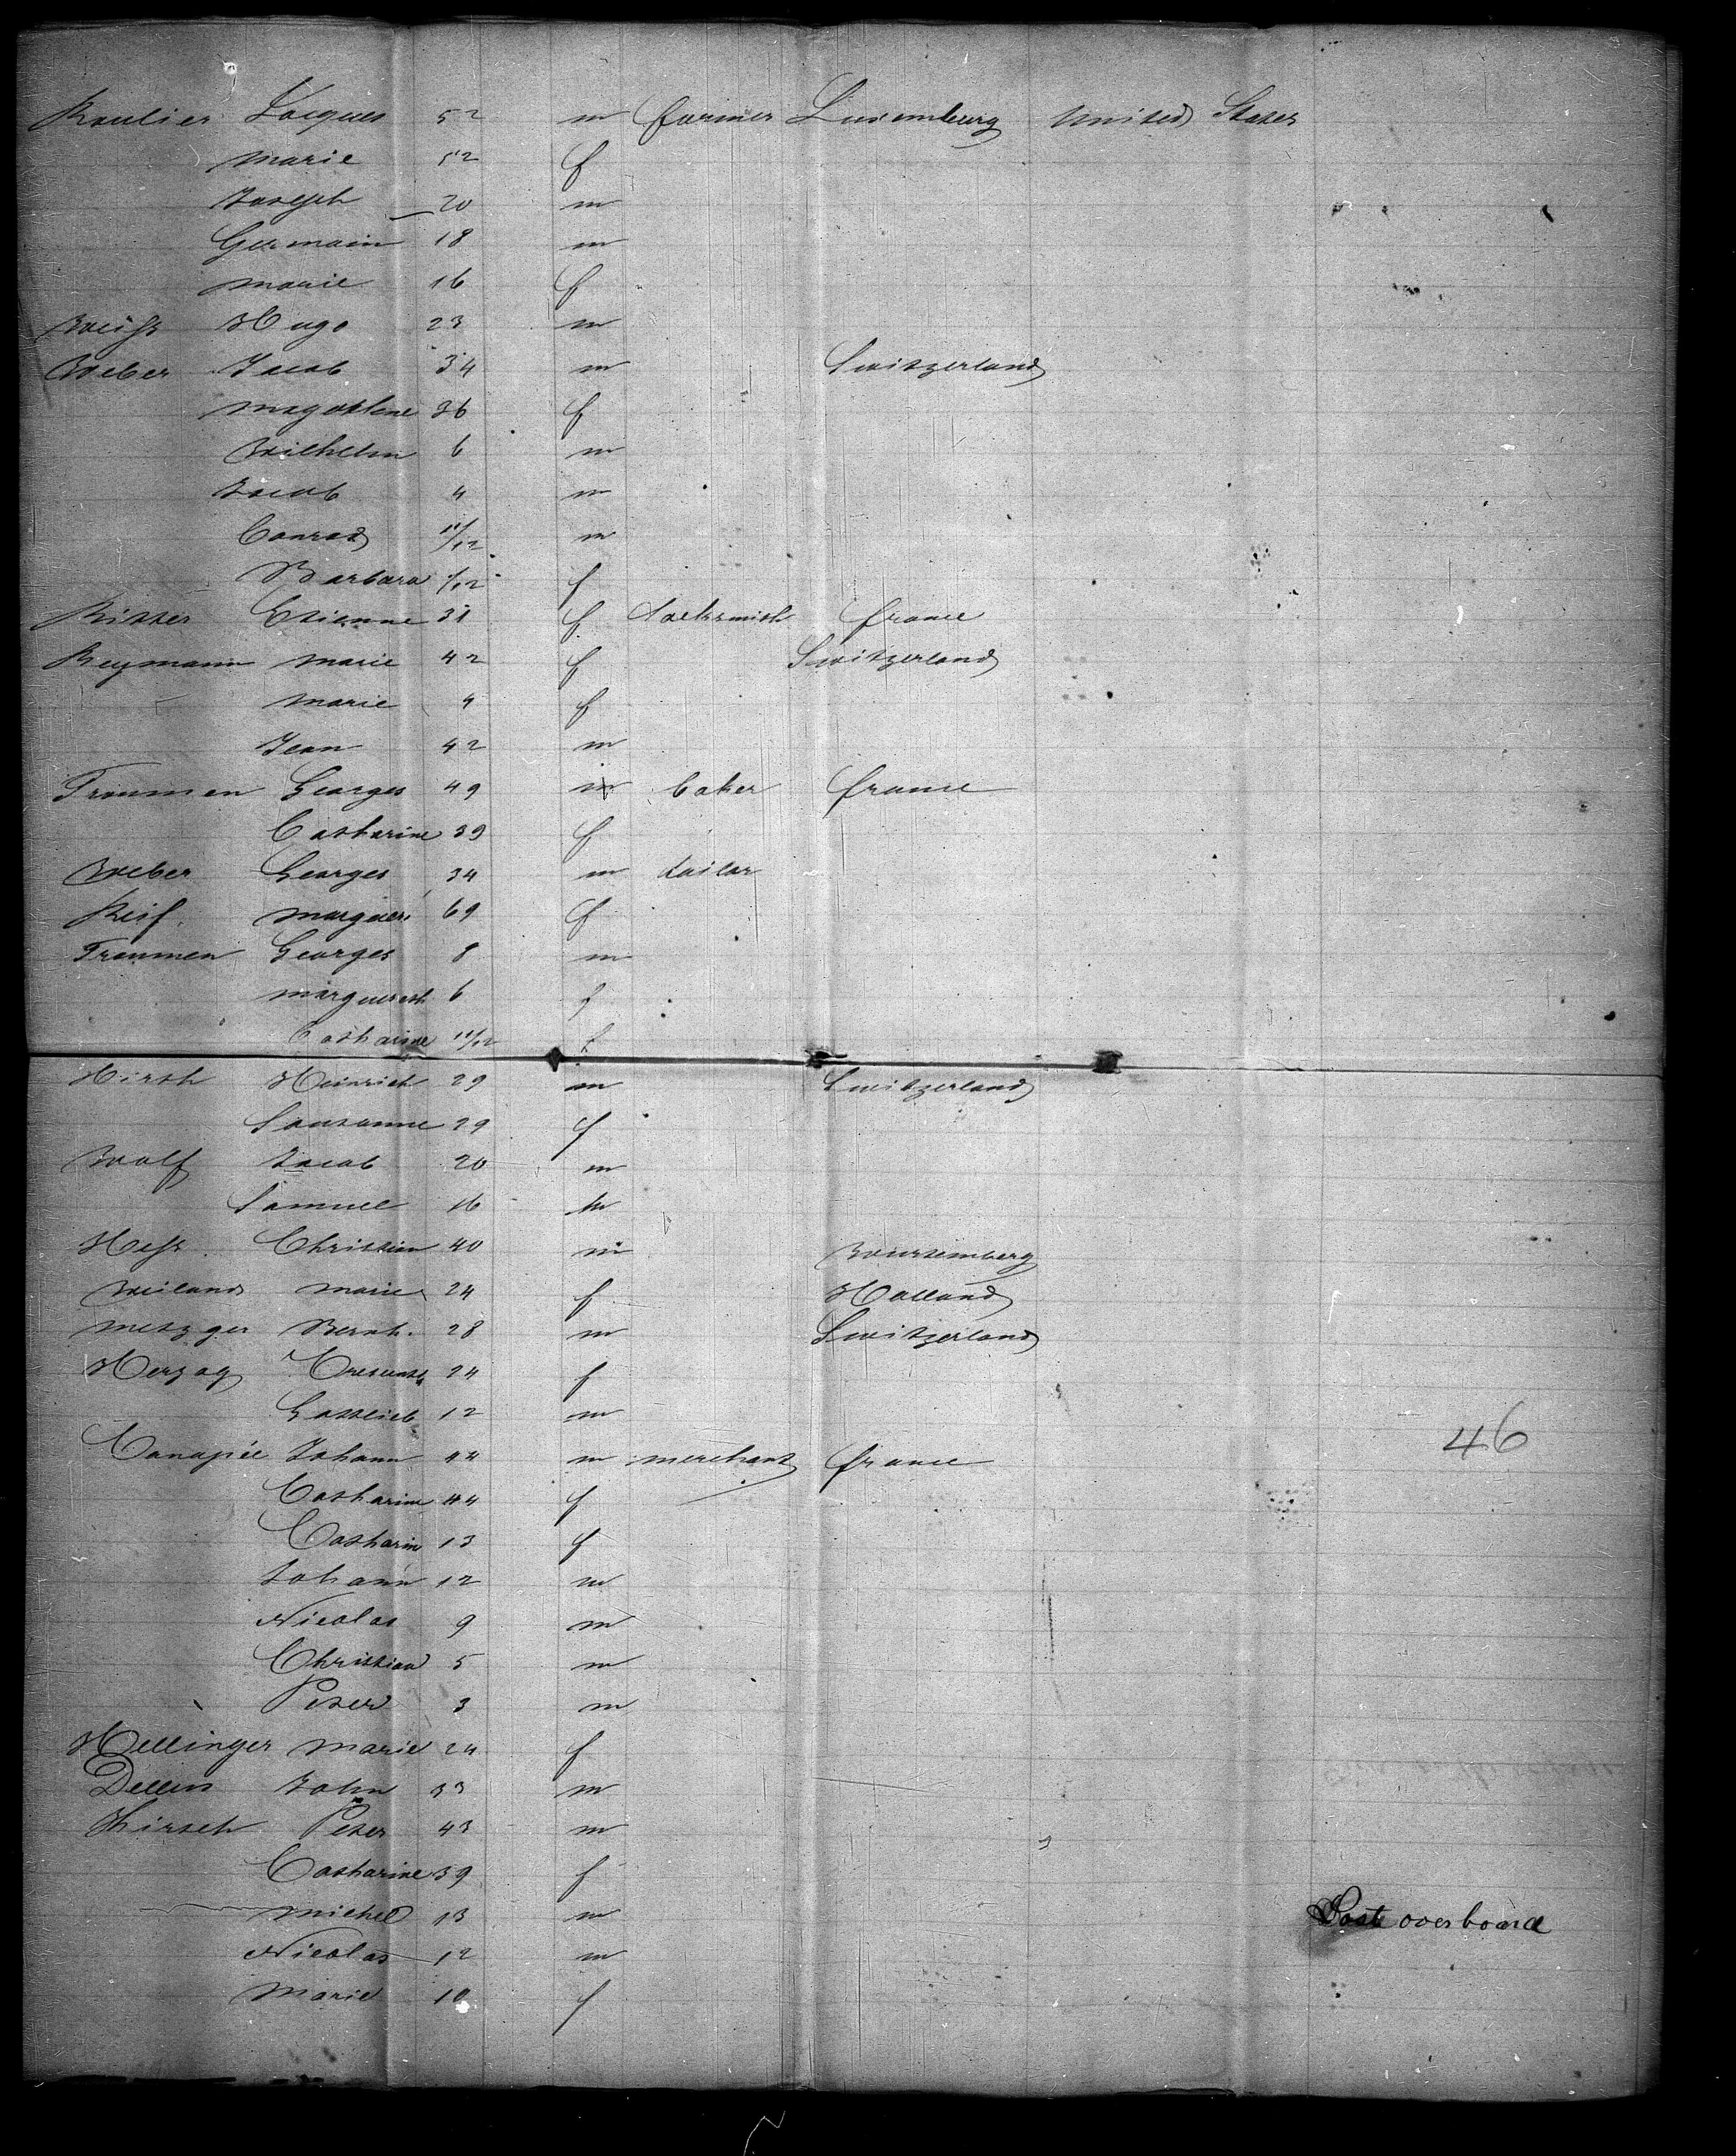 Roulier Jacques 52 m farmer Luxemburg United States
Marie 52 f
Joseph 20 m
Germain 18 m
Marie 16 f
Weiss Hugo 23 m
Weber Jacob 34 m Switzerland
Magdalene 36 f
Wilhelm 6 m
Jacob 4 m
Conrad 11/12 m
Barbara 1/12 f
Ritter Etienne 31 f locksmith france
Reymann Marie 42 f Switzerland
Marie 4 f
Jean 42 m
Troumen Georges 49 m baker france
Catharine 39 f
Weber Georges 34 m tailor
Reif marguer. 69 f
Troumen Georges 8 m
margureth 6 f
Catharine 11/12 f
Hirth Heinrich 29 m Switzerland
Sousanne 29 f
Wolf Jacob 20 m
Samuel 16 m
Hess Christian 40 m Wurtemberg
Weiland Marie 24 f Holland
Metzger Bernh. 28 m Switzerland
Herzog 24 f
Gottlieb 12 m
Canapée Johann 44 m merchant france
Catharine 44 f
Catharine 13 f
46
Johann 12 m
Nicolas 9 m
Christian 5 m
Peter 3 m
Hellinger Marie 24 f
John 33 m
Hirsch Peter 43 m
Catharine 39 f
Michel 13 m Lost overboard
Nicolas 12 m
Marie 10 f